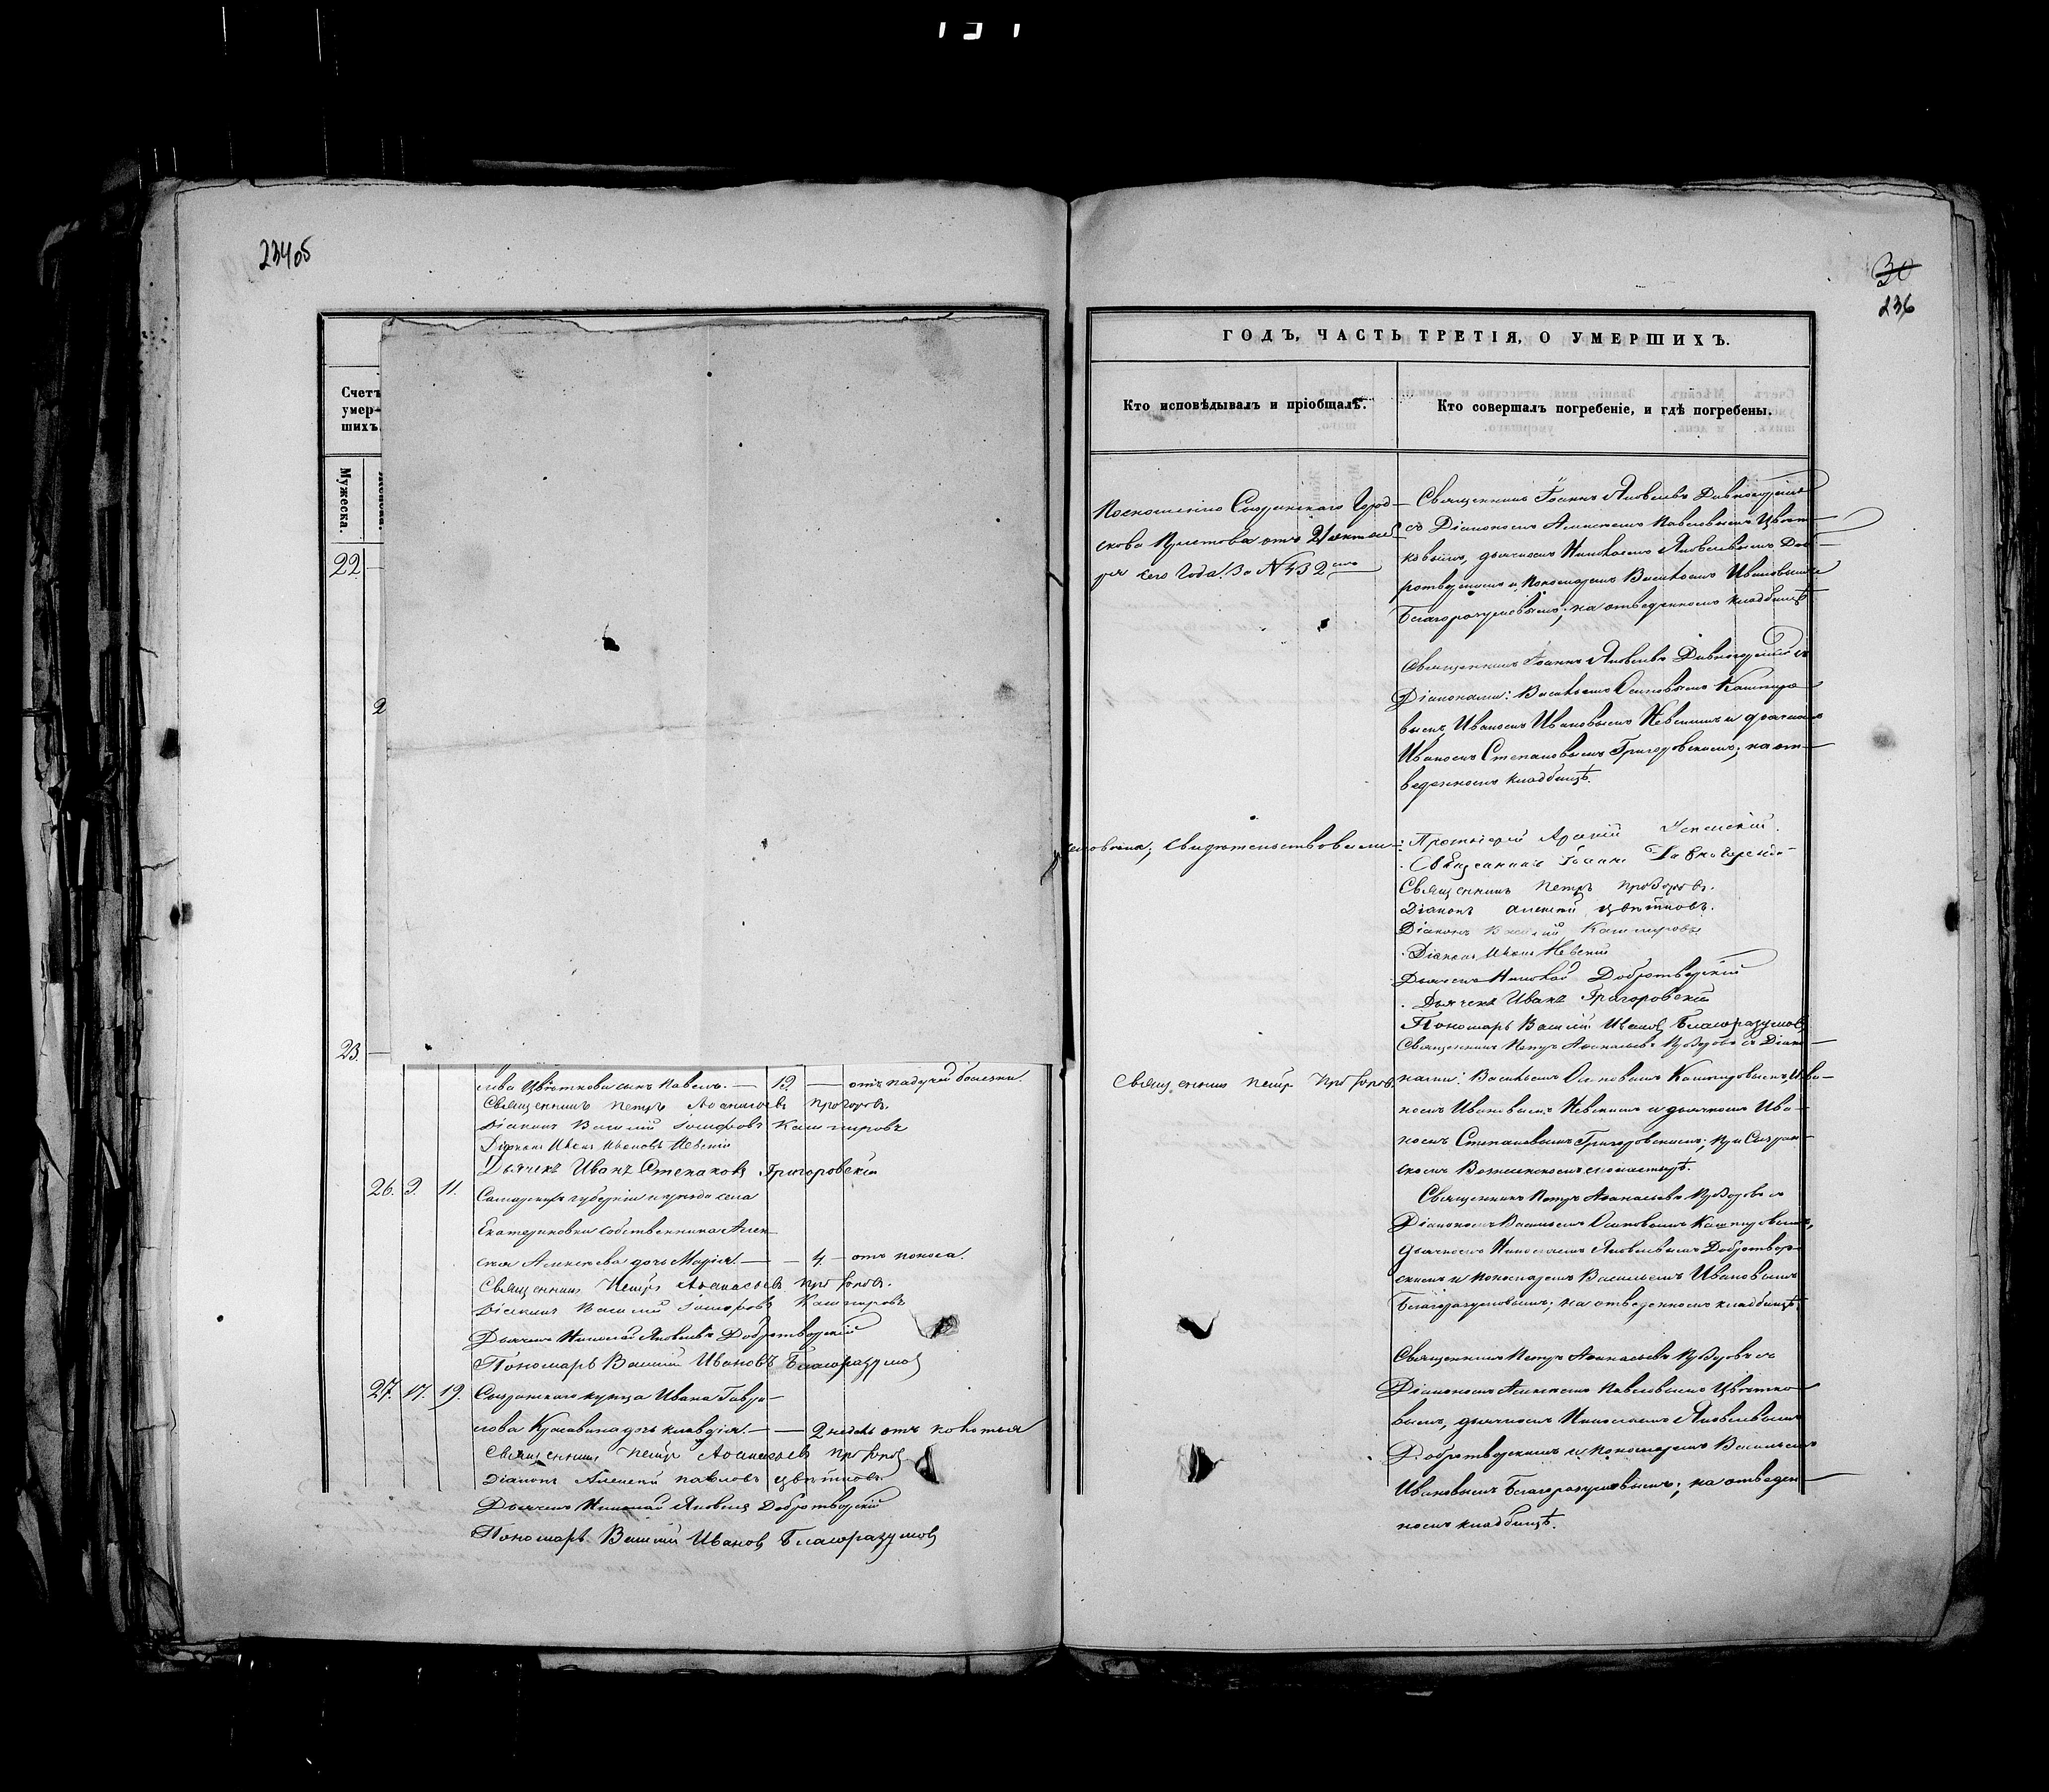 234об
30
236
Счетъ
умер-
шихъ.
Мужеска.
22
2
23.
лова Цвѣткова сынъ Павелъ. — 12 — отъ падучей болезни.
Священникъ Петръ Аѳанасьевъ Прозоровъ.
Діаконъ Василій Іосифовъ Кашпировъ
Діаконъ Иванъ Ивановъ Невскій
Дьячекъ Иванъ Степановъ Григоровскій
26. 9. 11. Самарской губерніи и уѣзда села
Екатериновки собственника Алек-
сея Алексѣева дочь Марія. — — 4 — отъ поноса.
Священникъ Петръ Аѳанасьевъ Прозоровъ.
Діаконъ Василій Іосифовъ Кашпировъ
Дьячекъ Николай Яковлевъ Добротворскій
Пономарь Василій Ивановъ Благоразумовъ
27. 17. 19. Сызранскаго купца Ивана Гаври-
лова Красавина дочь Клавдія. — — 2 недѣль отъ
Священникъ Петръ Аѳанасьевъ Прозоровъ
Діаконъ Алексей Павловъ Цвѣтковъ
Дьячекъ Николай Яковлевъ Добротворскій
Пономарь Василій Ивановъ Благоразумовъ
ГОДЪ, ЧАСТЬ ТРЕТІЯ, О УМЕРШИХЪ.
Кто исповѣдывалъ и пріобщалъ.
Кто совершалъ погребеніе, и гдѣ погребены.
По сношенію Сызранскаго Город-
отъ 21 октяб-
ря сего года. За № 432
Священникъ Іоаннъ Яковлевъ Дивногорскій
съ Діакономъ Алексѣемъ Павловымъ Цвѣт-
ковымъ, дьячкомъ Николаемъ Яковлевымъ Доб-
ротворскимъ и пономаремъ Василіемъ Ивановымъ
Благоразумовымъ; на отведенномъ кладбищѣ.
Священникъ Іоаннъ Яковлевъ Дивногорскій съ
Діаконами: Василіемъ Осиповымъ Кашпиро-
вымъ, Иваномъ Ивановымъ Невскимъ и дьячкомъ
Иваномъ Степановымъ Григоровскимъ; на от-
веденномъ кладбищѣ.
свидѣтельствовали:
Протоіерей Арсеній Успенскій.
Священникъ Іоаннъ Дивногорскій
Священникъ Петръ Прозоровъ.
Діаконъ Алексей Цвѣтковъ.
Діаконъ Василій Кашпировъ
Діаконъ Иванъ Невскій
Дьячекъ Николай Добротворскій
Дьячекъ Иванъ Григоровскій
Пономарь Василій Ивановъ Благоразумовъ
Священникъ Петръ Прозоровъ
Священникъ Петръ Аѳанасьевъ Прозоровъ съ Діако-
нами: Василіемъ Осиповымъ Кашпировымъ, Ива-
номъ Ивановымъ Невскимъ и дьячкомъ Ива-
номъ Степановымъ Григоровскимъ; при Сызран-
скомъ Вознесенскомъ монастырѣ.
Священникъ Петръ Аѳанасьевъ Прозоровъ съ
Діакономъ Василіемъ Осиповымъ Кашпировымъ,
дьячкомъ Николаемъ Яковлевымъ Добротвор-
скимъ и пономаремъ Василіемъ Ивановымъ
Благоразумовымъ; на отведенномъ кладбищѣ.
Священникъ Петръ Аѳанасьевъ Прозоровъ съ
Діакономъ Алексѣемъ Павловымъ Цвѣтко-
вымъ, дьячкомъ Николаемъ Яковлевымъ
Добротворскимъ и пономаремъ Василіемъ
Ивановымъ Благоразумовымъ; на отведен-
номъ кладбищѣ.